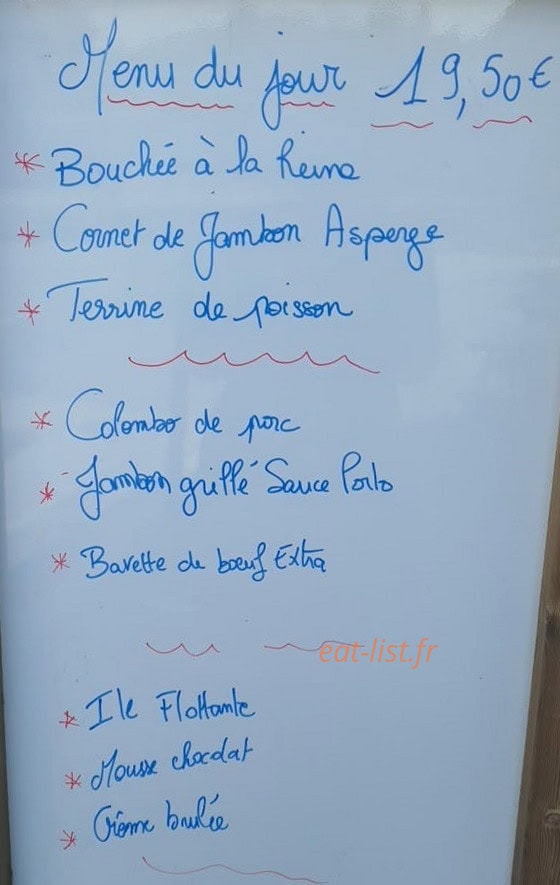 Menu du jour 19,50€
* Bouchée à la Reine
* Cornet de Jambon Asperge
* Terrine de poisson
* Colombo de porc
* Jambon grillé Sauce Porto
* Bavette de boeuf Extra
eat-list.fr
* Ile Flottante
* Mousse chocolat
* Crème brulée